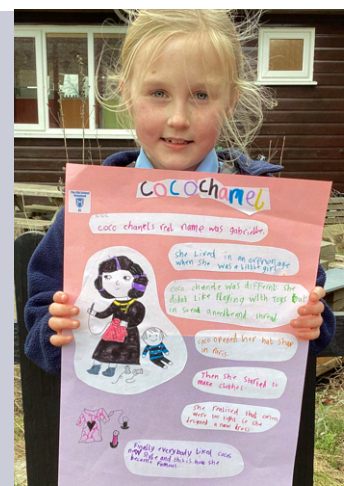 COCO CHANEL
coco chanels real name was gabrielle.
She Lived in an orphanage
when she was a little girl.
coco chanel was different she
didnt like playing with toys but
in sted
coco opened her hat shop
in Paris.
Then she started to
make clothes.
She realised that
were too tight so she
designed a new dress.
Finally everybody liked cocos
new style and that is how she
became famous.